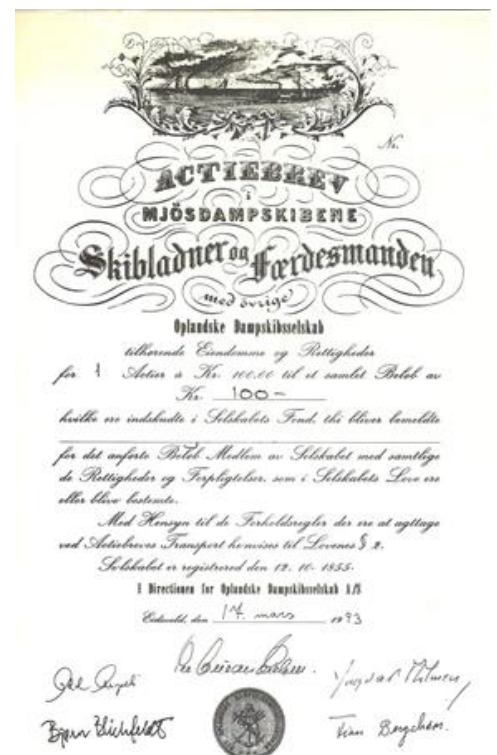 No.
ACTIEBREV
i
MJÖSDAMPSKIBENE
Skibladner og Færdesmanden
med övrige
Oplandske Dampskibsselskab
tilhørende Eiendomme og Rettigheder
for 1 Actier à Kr. 100.00 til et samlet Beløb av
Kr. 100-
hvilke ere indskudte i Selskabets Fond, thi bliver bemeldte
for det anførte Beløb Medlem av Selskabet med samtlige
de Rettigheder og Forpligtelser, som i Selskabets Love ere
eller blive bestemte.
Med Hensyn til de Forholdsregler der ere at agttage
ved Actiebreves Transport henvises til Lovenes § 2.
Selskabet er registrered den 12. 10. 1855.
I Directionen for Oplandske Dampskibsselskab A/S
Eidsvold, den 17. mars 1993
Bjørn Blichfeldt